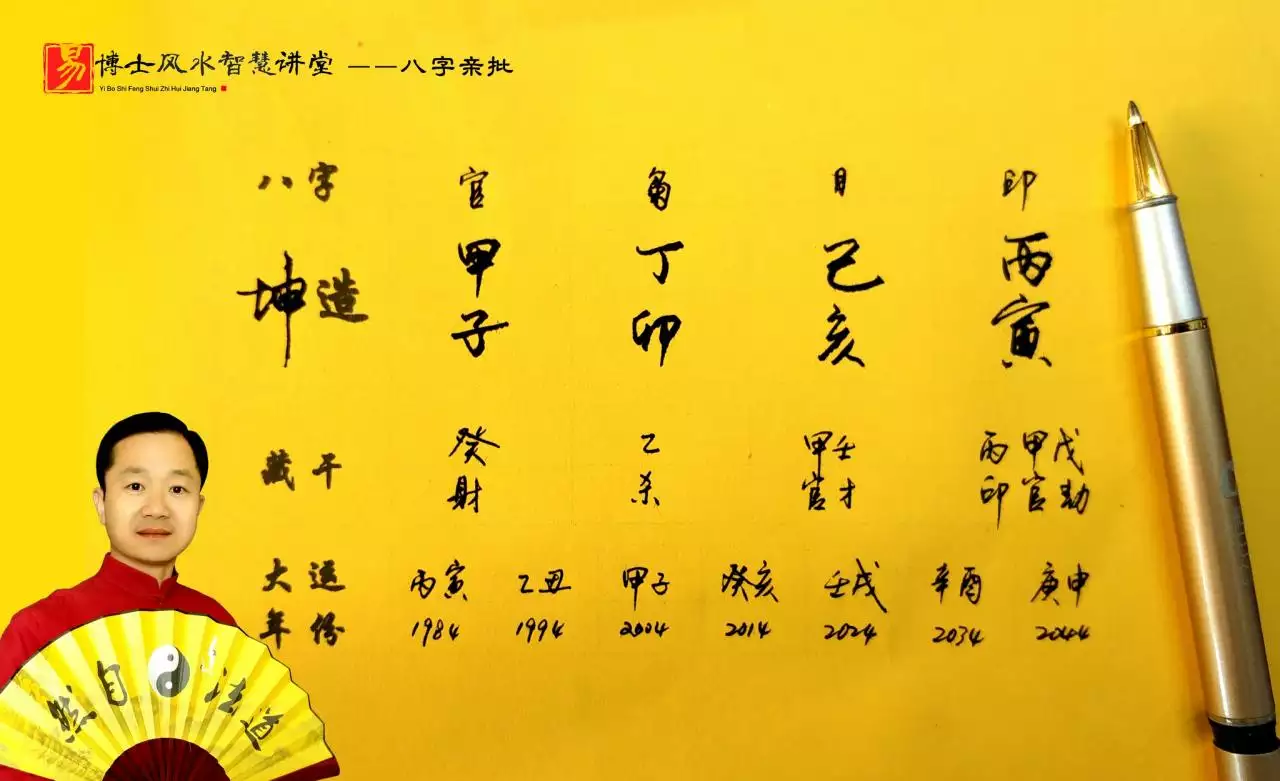 易 博士风水智慧讲堂 ——八字亲批
Yi Bo Shi Feng Shui Zhi Hui Jiang Tang
八字 官 枭 日 印
坤造 甲 丁 己 丙
子 卯 亥 寅
藏干 癸 乙 甲壬 丙甲戊
財 杀 官才 印官劫
大运 丙寅 乙丑 甲子 癸亥 壬戌 辛酉 庚申
年份 1984 1994 2004 2014 2024 2034 2044
然自法道